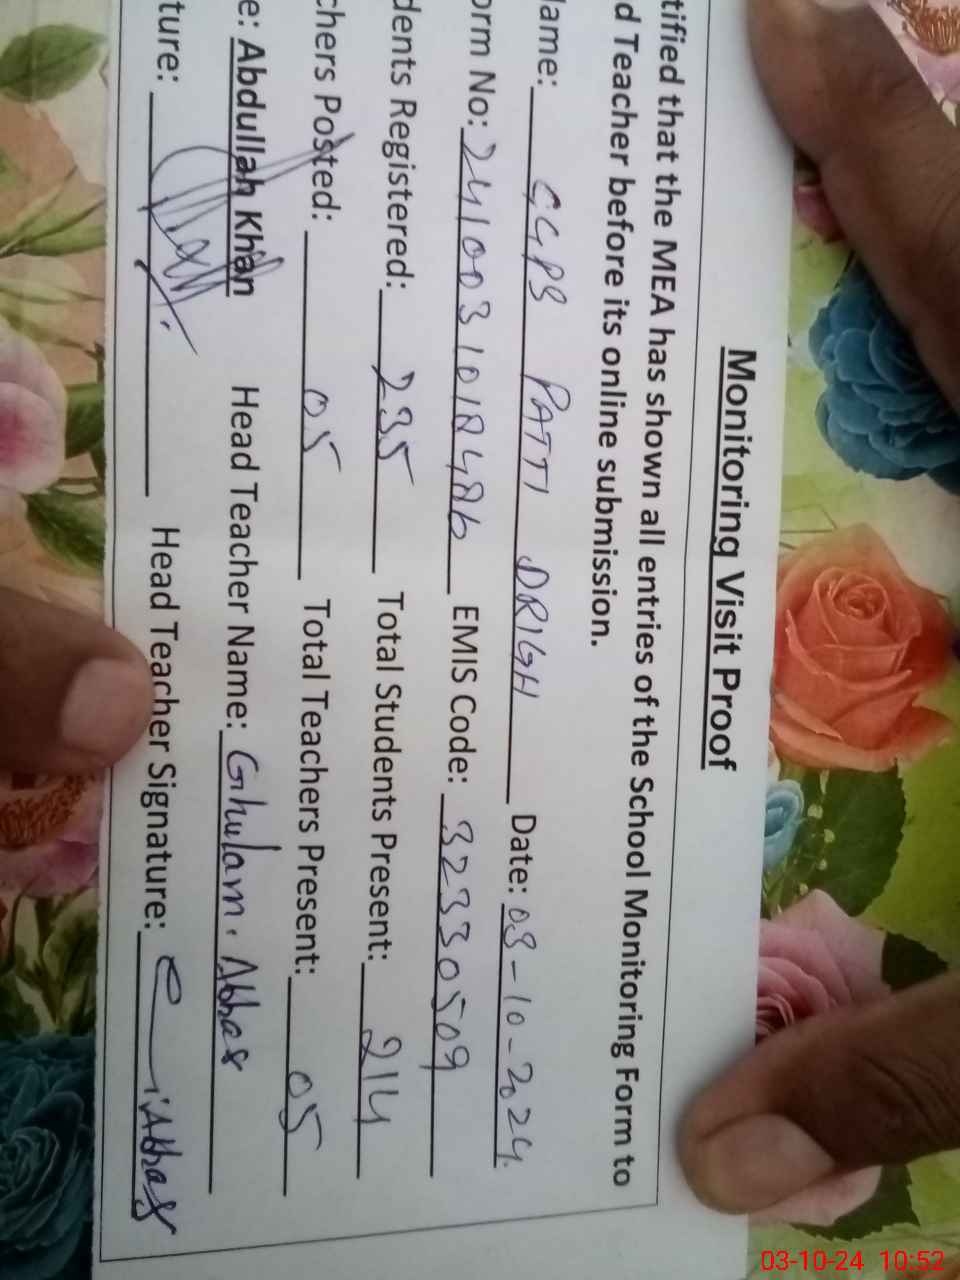 Monitoring Visit Proof
tified that the MEA has shown all entries of the School Monitoring Form to
d Teacher before its online submission.
lame: GGPS PATTI DRIGH Date: 03-10-2024.
orm No: EMIS Code: 32330509
dents Registered: 235 Total Students Present: 214
chers Posted: 05 Total Teachers Present: 05
e: Abdullah Khan Head Teacher Name: Ghulam. Abbas
ture: Head Teacher Signature: Abbas
03-10-24 10:52